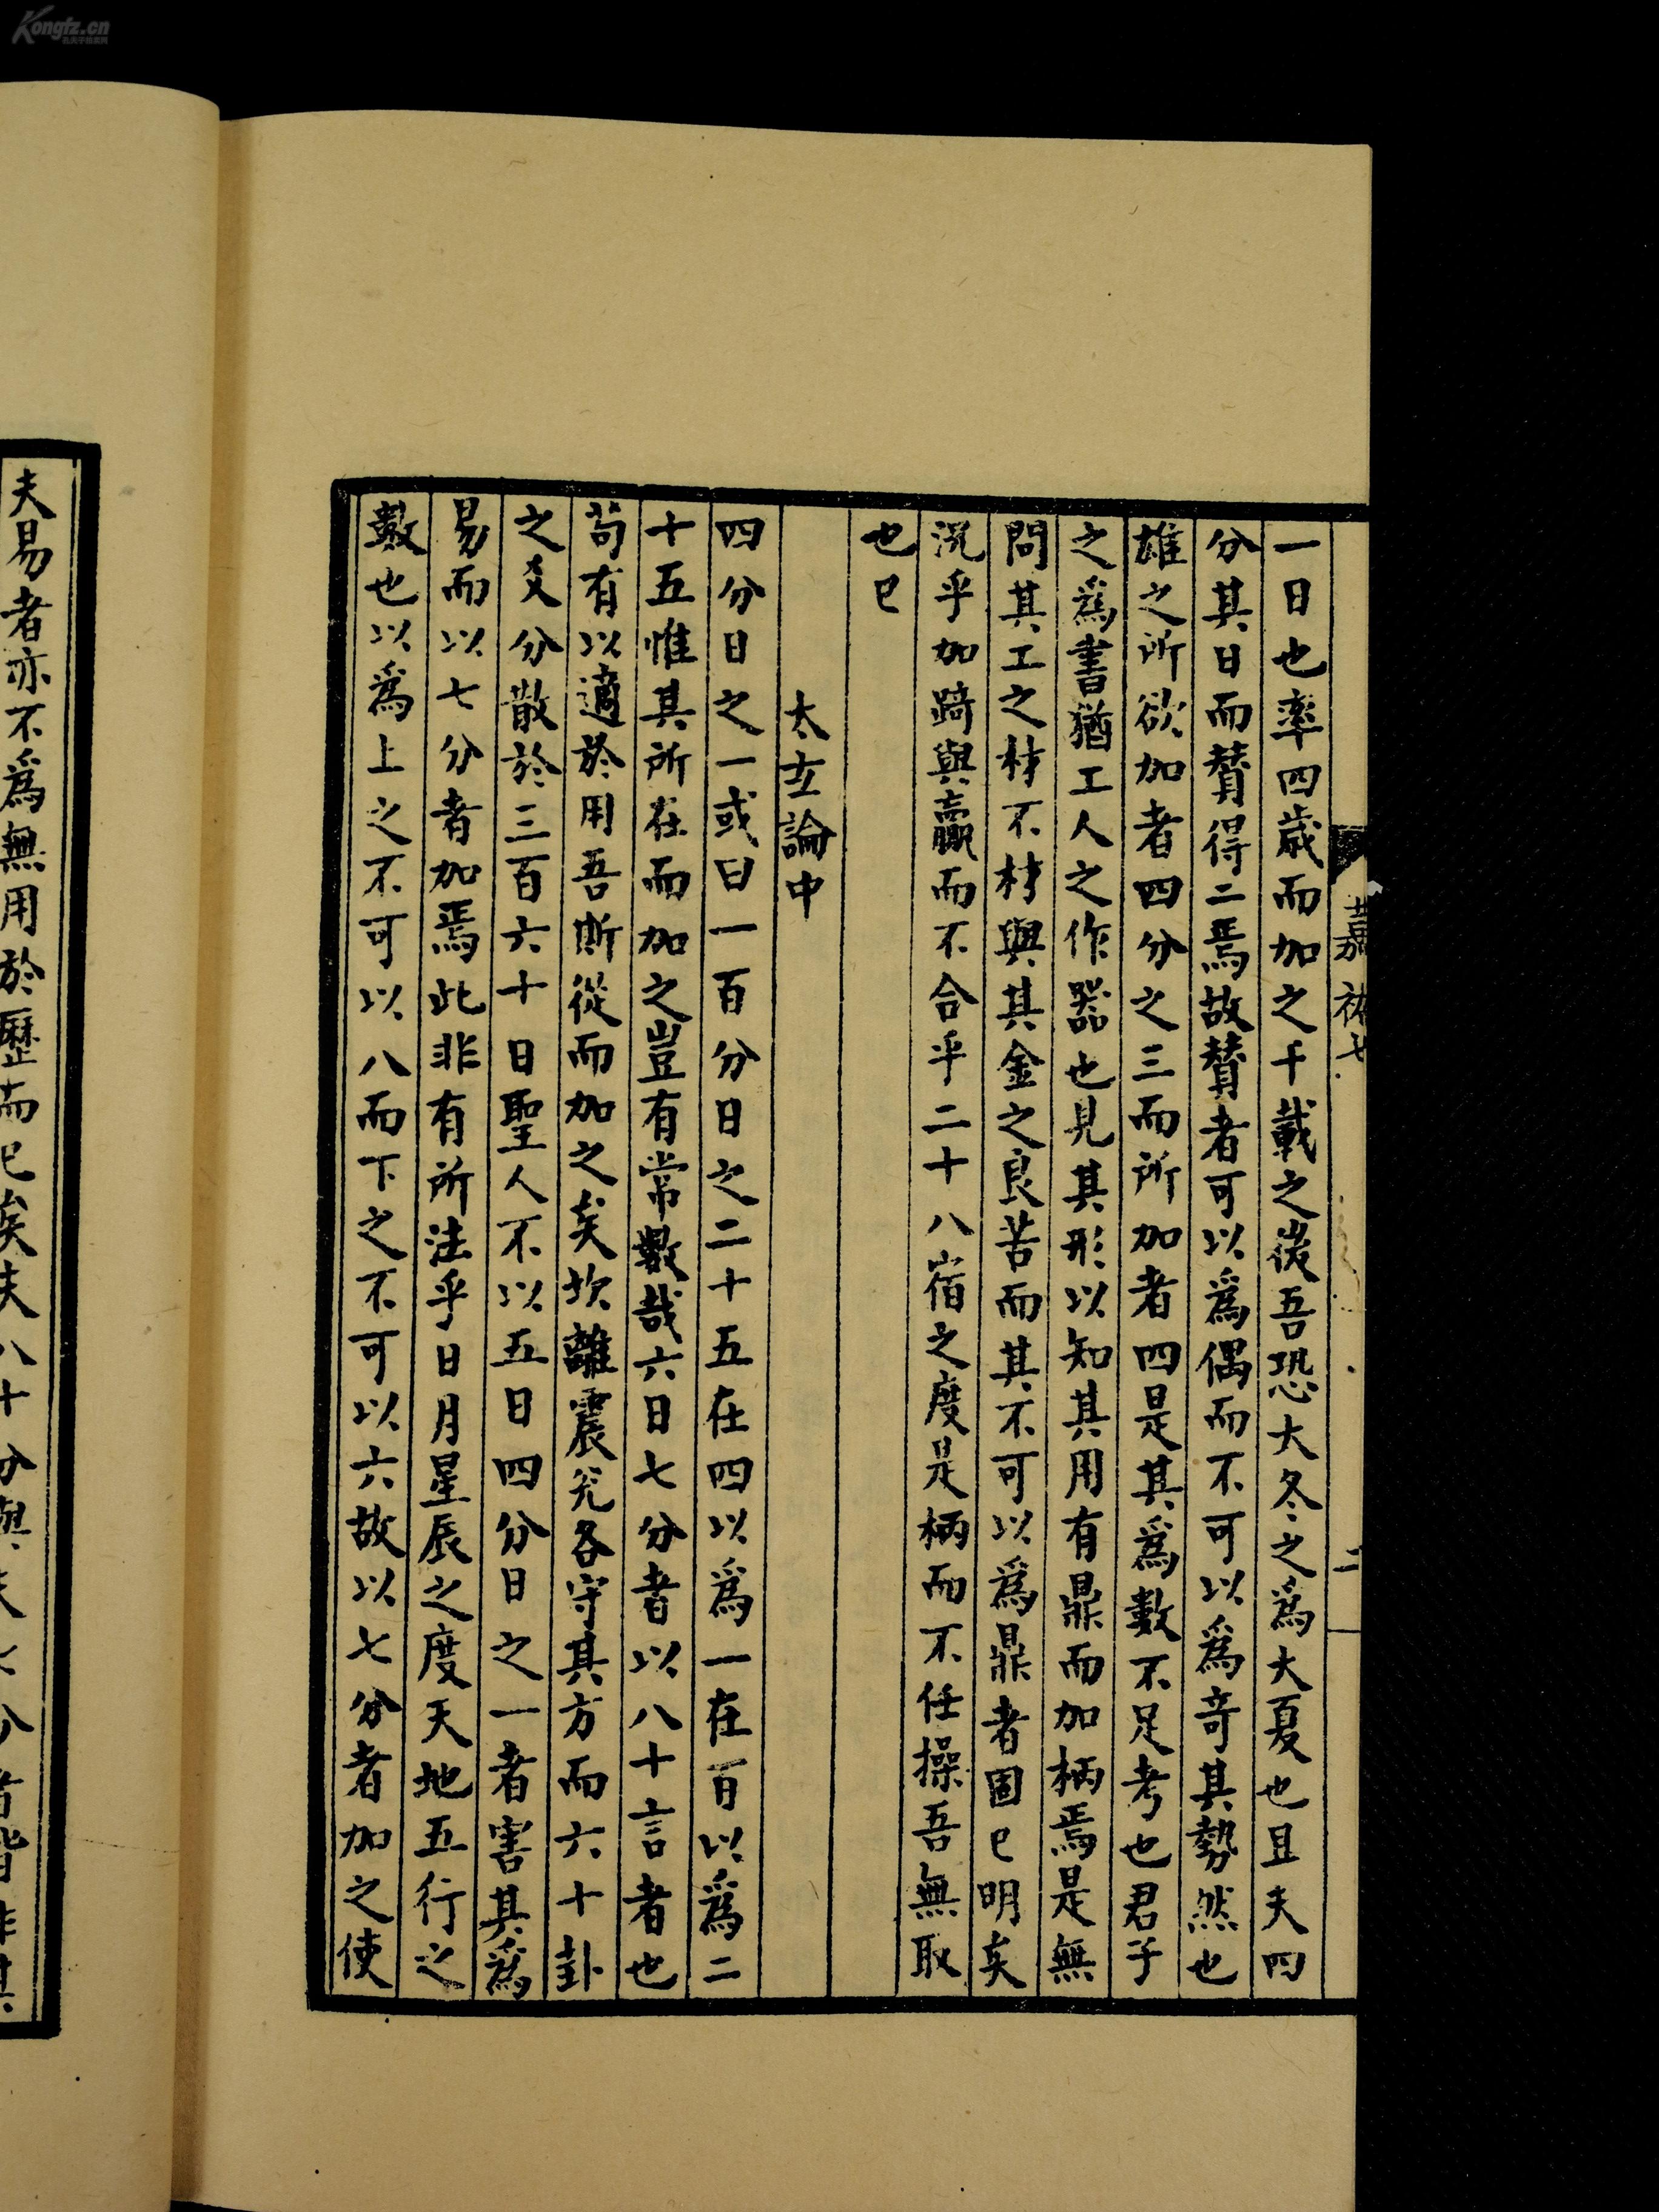 Kongfz.cn
嘉祐七
二
一日也率四歲而加之千載之後吾恐大冬之爲大夏也且夫四
分其日而贊得二焉故贊者可以爲偶而不可以爲奇其勢然也
雄之所欲加者四分之三而所加者四是其爲數不足考也君子
之爲書猶工人之作器也見其形以知其用有鼎而加柄焉是無
問其工之材不材與其金之良苦而其不可以爲鼎者固已明矣
況乎加踦與贏而不合乎二十八宿之度是柄而不任操吾無取
也已
太玄論中
四分日之一或曰一百分日之二十五在四以爲一在百以爲二
十五惟其所在而加之豈有常數哉六日七分者以八十言者也
苟有以適於用吾斯從而加之矣坎離震兊各守其方而六十卦
之爻分散於三百六十日聖人不以五日四分日之一者害其爲
易而以七分者加焉此非有所法乎日月星辰之度天地五行之
數也以爲上之不可以八而下之不可以六故以七分者加之使
夫易者亦不爲無用於歷而已矣夫八十分與夫七分者皆非其